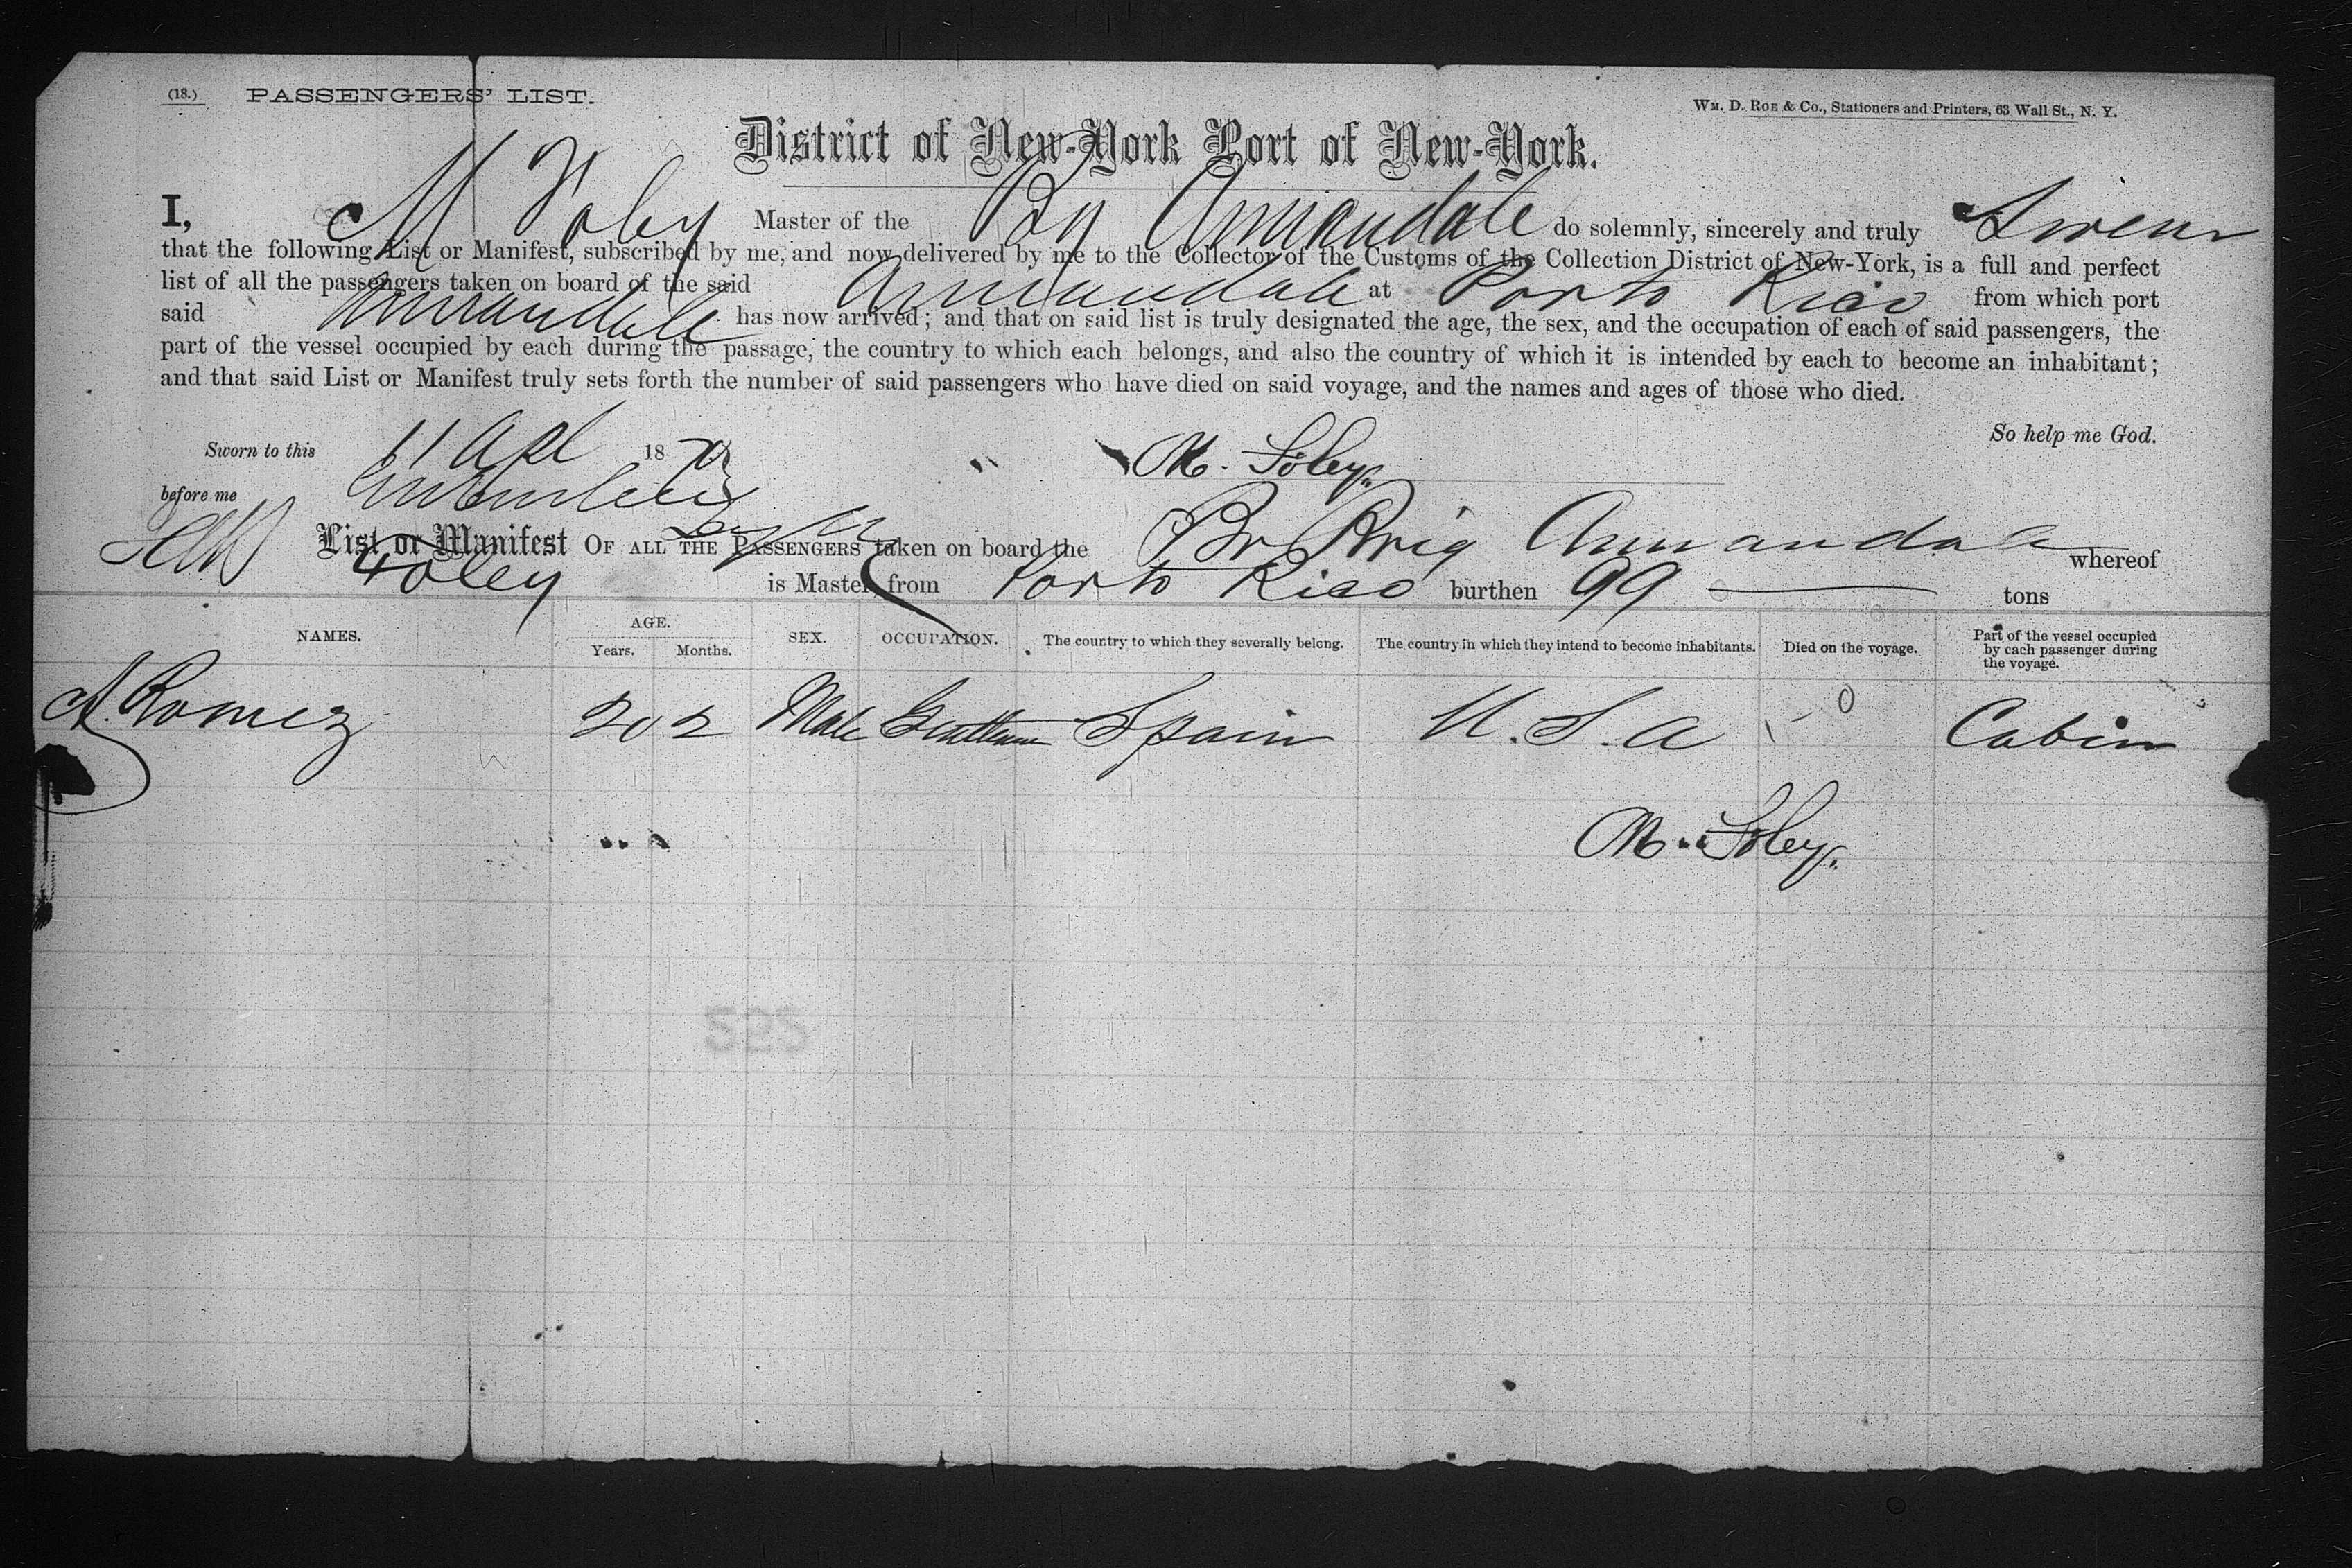 (18.) PASSENGERS' LIST.
WM. D. ROE & Co., Stationers and Printers, 63 Wall St., N. Y.
District of New-York Port of New-York.
I, M Foley Master of the Bg Annandale do solemnly, sincerely and truly Swear
that the following List or Manifest, subscribed by me, and now delivered by me to the Collector of the Customs of the Collection District of New-York, is a full and perfect
list of all the passengers taken on board of the said Annandale at Porto Rico from which port
said Annandale has now arrived; and that on said list is truly designated the age, the sex, and the occupation of each of said passengers, the
part of the vessel occupied by each during the passage, the country to which each belongs, and also the country of which it is intended by each to become an inhabitant;
and that said List or Manifest truly sets forth the number of said passengers who have died on said voyage, and the names and ages of those who died.
So help me God.
Sworn to this 11 Apl 18
M. Foley
before me
List or Manifest OF ALL THE PASSENGERS taken on board the Br Brig Annandale whereof
Foley is Master, from Porto Rico burthen 99 tons
NAMES. AGE. SEX. OCCUPATION. The country to which they severally belong. The country in which they intend to become inhabitants. Died on the voyage. Part of the vessel occupied by each passenger during the voyage.
Years. Months.
A. Romez 20 2 Male Gentleman Spain U.S.A 0 Cabin
M. Foley